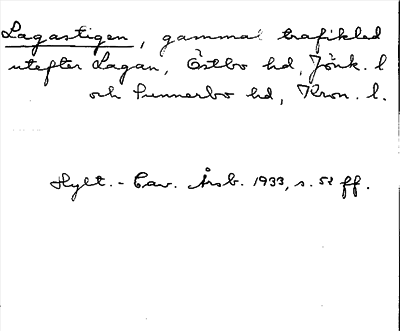 Lagastigen, gammal trafikled
utefter Lagan, Östbo hd, Jönk. l
och Sunnerbo hd, Kron. l.
Hylt.-Cav. Årsb. 1933, s. 52 ff.